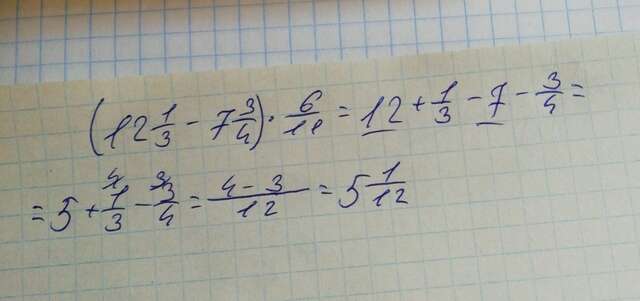 (12 1/3 - 7 3/4) · 6/11 = 12 + 1/3 - 7 - 3/4 =
= 5 + 1/3 ⁴ - 3/4 ³ = (4 - 3)/12 = 5 1/12